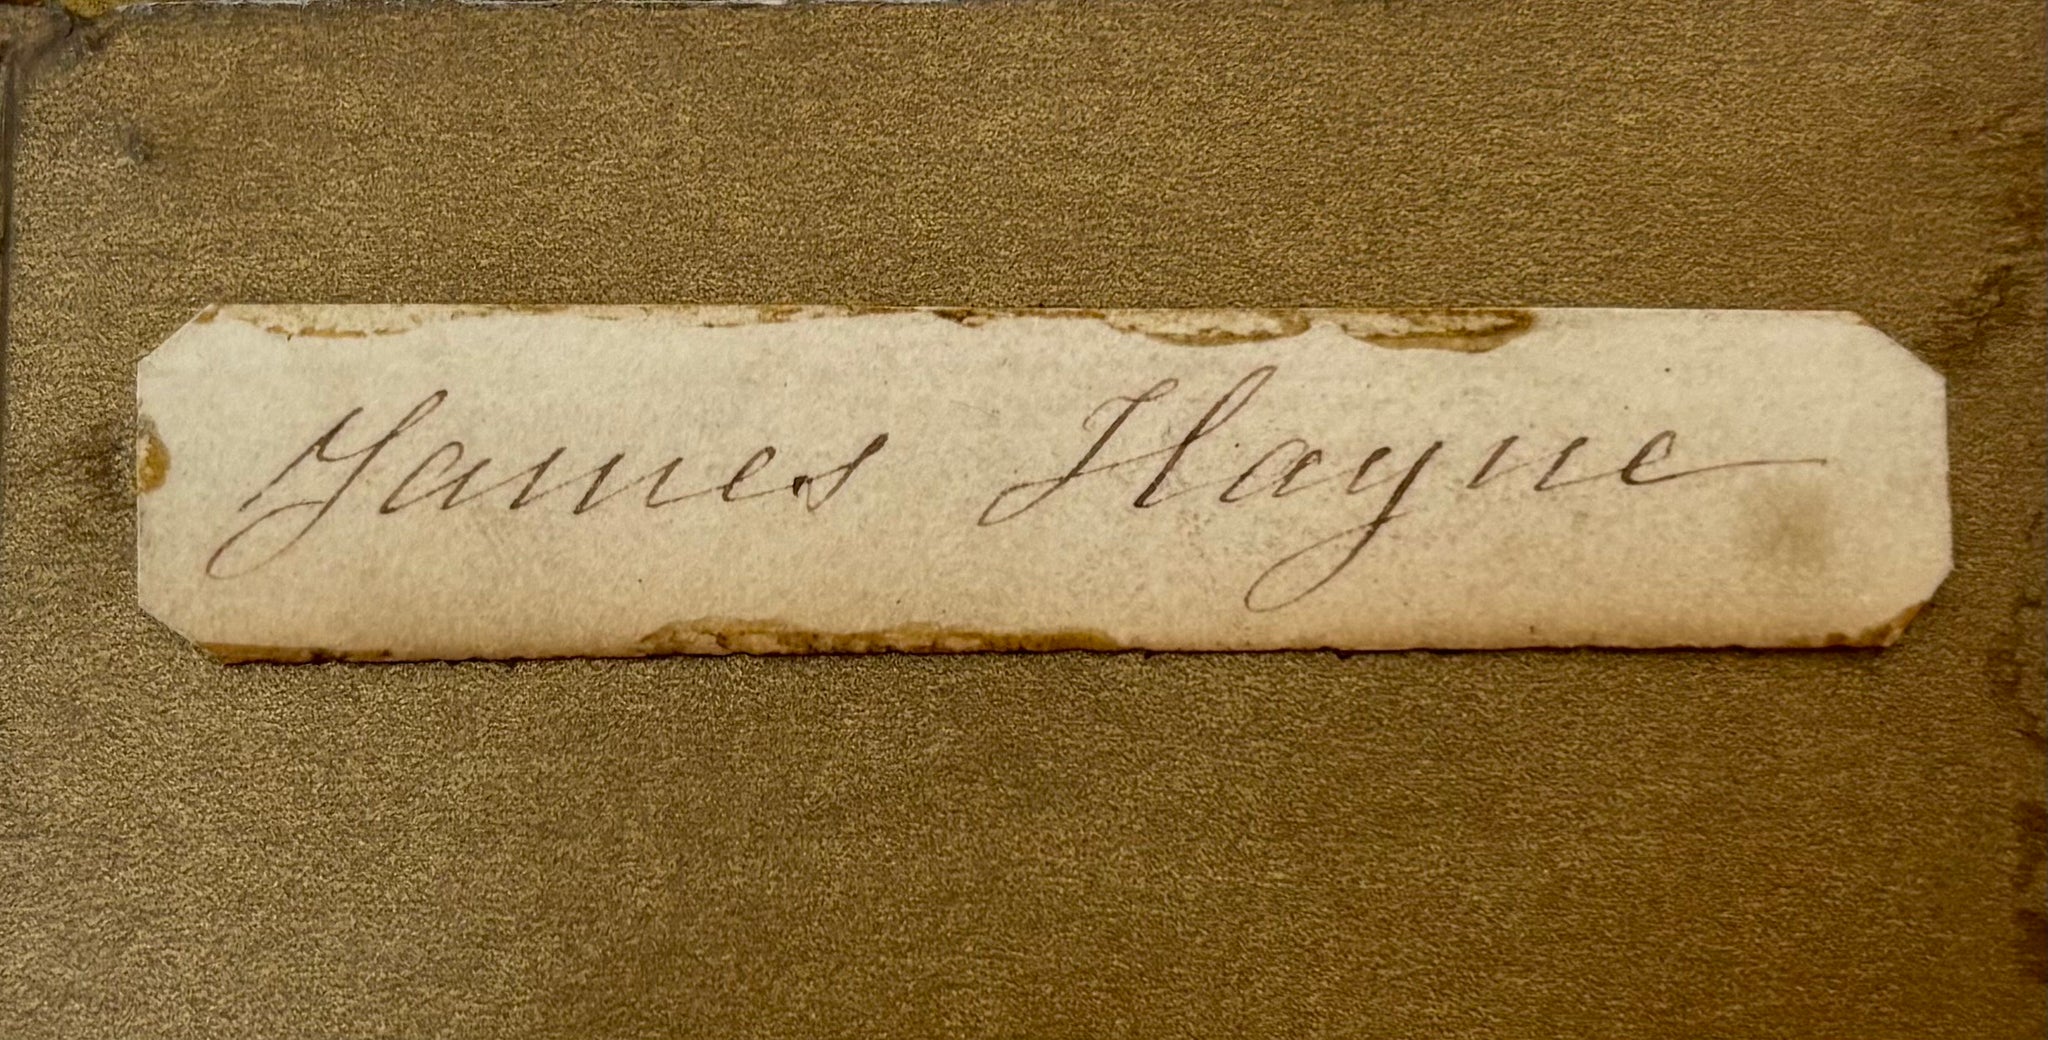 James Hayne